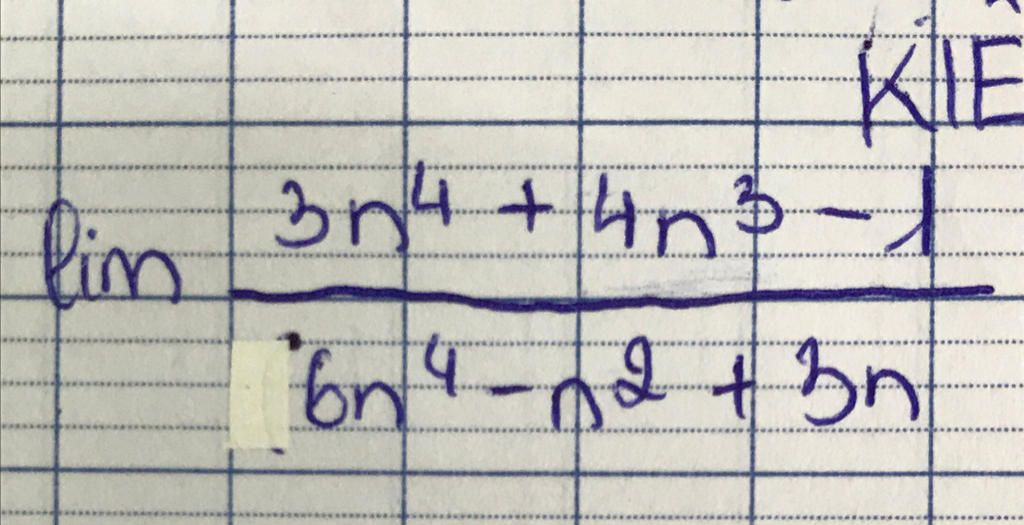 KIE
lim (3n⁴ + 4n³ - 1) / (6n⁴ - n² + 3n)